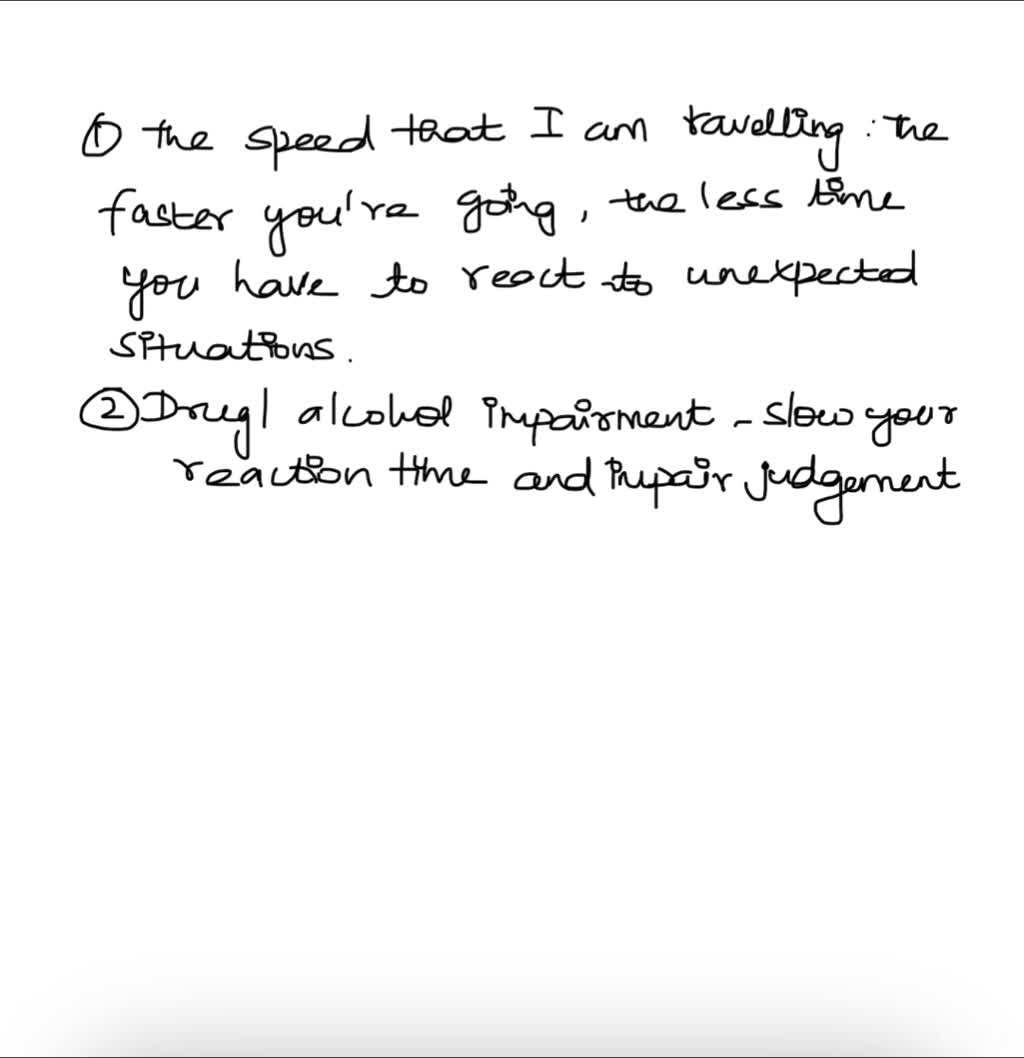 ① the speed that I am travelling : the
faster you're going, the less time
you have to react to unexpected
situations.
② Drug/ alcohol impairment - slow your
reaction time and impair judgement